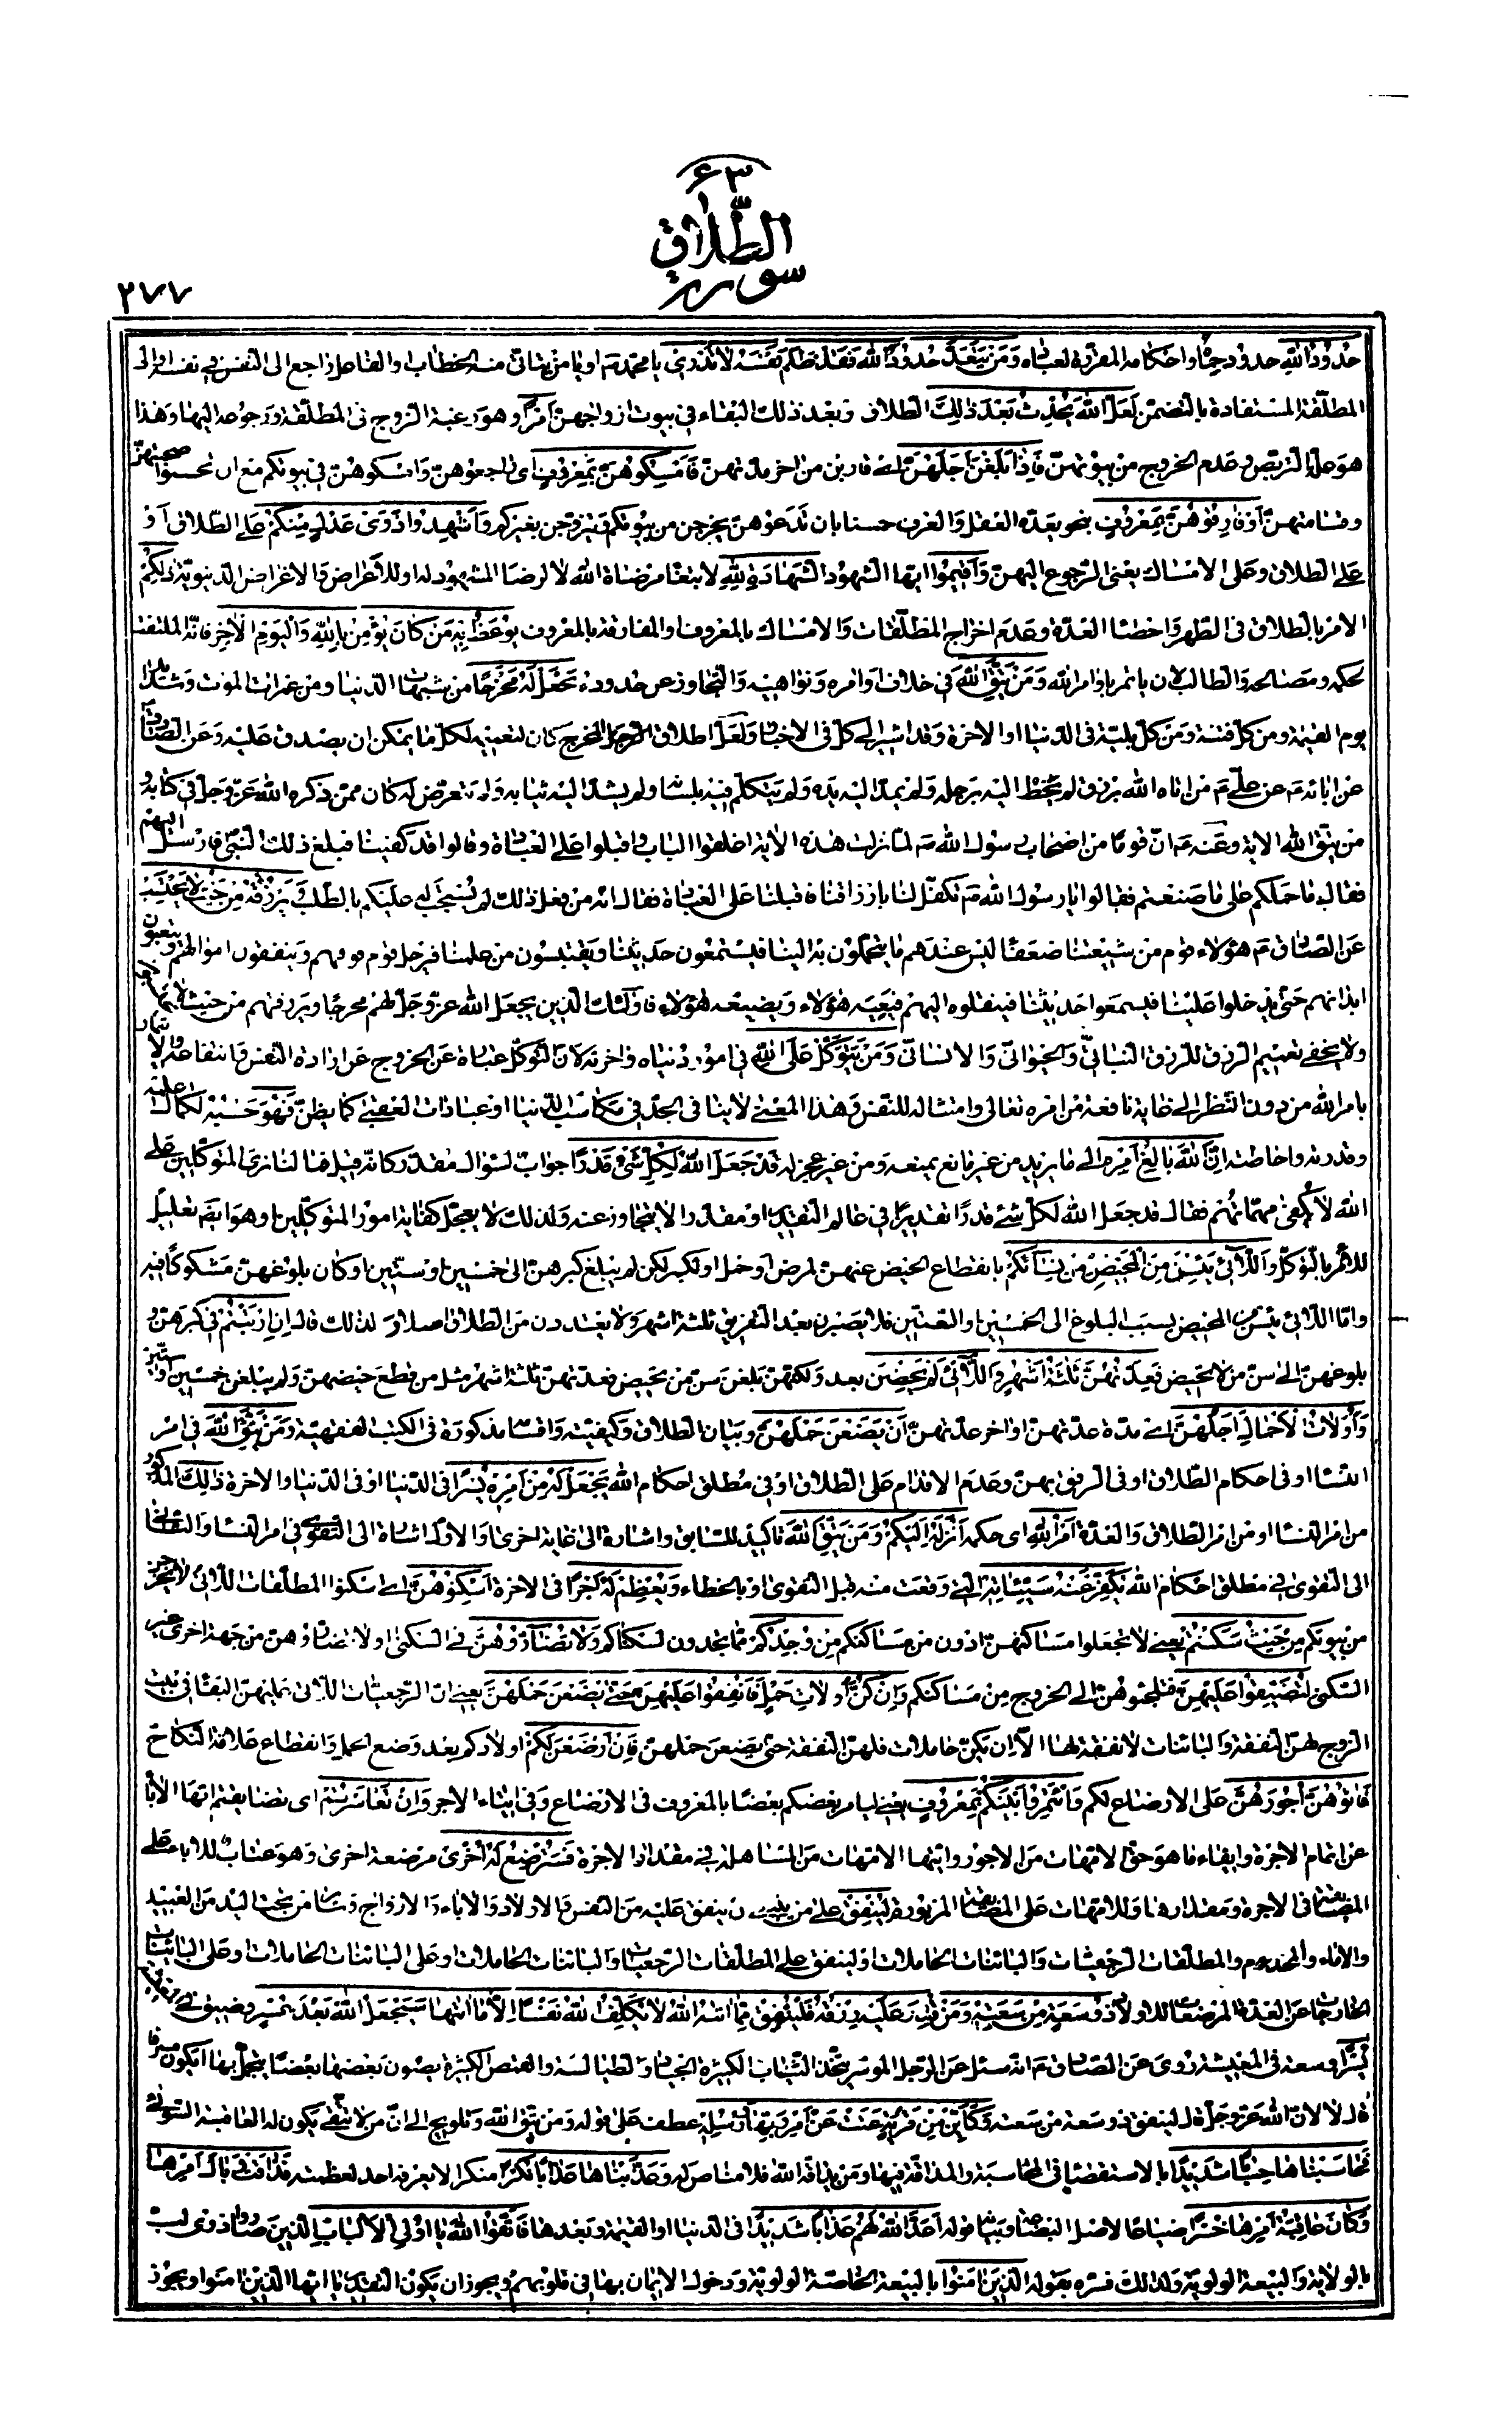 ۶۳
الطّلاق
سورة
۲۷۷
حُدُودُ اللّٰهِ حدود حِمٰاه واحكامه المقرّرة لعباده وَمَنْ يَتَعَدَّ حُدُودَ اللّٰهِ فَقَدْ ظَلَمَ نَفْسَهُ لاٰ تَدْرِي يا محمّد ص او يا من يتأتّى منه الخطاب والفاعل راجع الى النّفس في نفسه او الى
المطلّقة المستفادة بالتّضمّن لَعَلَّ اللّٰهَ يُحْدِثُ بَعْدَ ذٰلِكَ الطّلاق وبعد ذلك البقاء في بيوت ازواجهنّ أَمْرًا وهو رغبة الزّوج فى المطلّقة ورجوعه اليها وهذا
هو علّة التّربّص وعدم الخروج من بيوتهنّ فَإِذٰا بَلَغْنَ أَجَلَهُنَّ اى قاربن من اخر مدّتهنّ فَأَمْسِكُوهُنَّ بِمَعْرُوفٍ اى راجعوهنّ وامسكوهنّ في بيوتكم مع ان تحسنوا صحبتهنّ
ومضامتهنّ أَوْ فٰارِقُوهُنَّ بِمَعْرُوفٍ بنحو يعدّه العقل والعرف حسنا بان تدعوهنّ يخرجن من بيوتكم فيتزوّجن بغيركم وَأَشْهِدُوا ذَوَيْ عَدْلٍ مِنْكُمْ على الطّلاق او
على الطلاق وعلى الامساك يعنى الرّجوع اليهنّ وَأَقِيمُوا ايّها الشّهود الشَّهٰادَةَ لِلّٰهِ لابتغاء مرضاة اللّه لا لرضا المشهود له او للأغراض والاغراض الدّنيويّة ذٰلِكُمْ
الامر بالطّلاق فى الطّهر واحصاء العدّة وعدم اخراج المطلّقات والامساك بالمعروف والمفارقة بالمعروف يُوعَظُ بِهِ مَنْ كٰانَ يُؤْمِنُ بِاللّٰهِ وَالْيَوْمِ الْاٰخِرِ فانّه الملتفت
لحكمه ومصالحه والطالب لان يأتمر باوامر اللّه وَمَنْ يَتَّقِ اللّٰهَ في خلاف اوامره ونواهيه والتّجاوز عن حدوده يَجْعَلْ لَهُ مَخْرَجًا من شبهات الدّنيا ومن غمرات الموت وشدائد
يوم القيمة ومن كلّ فتنة ومن كلّ بليّة فى الدّنيا او الاخرة وقد اشير الى كلّ فى الاخبار ولعلّ اطلاق المخرج كان لتعميمه لكلّ ما يمكن ان يصدق عليه وعن الصّادق
عن ابائه ع عن علىّ ع من اتاه اللّه برزق لم يخط اليه برجله ولم يمدّ اليه يده ولم يتكلّم فيه بلسانه ولم يشدّ اليه ثيابه ولم يتعرّض له كان ممّن ذكره اللّه عزّ وجلّ في كتابه و
من يتّق اللّه الاية وعنه ع انّ قوما من اصحاب رسول اللّه ص لمّا نزلت هذه الاية اغلقوا الباب واقبلوا على العبادة وقالوا قد كفينا فبلغ ذلك النّبىّ فارسل اليهم
فقال ما حملكم على ما صنعتم فقالوا يا رسول اللّه ص تكفّل لنا بارزاقنا فاقبلنا على العبادة فقال انّه من فعل ذلك لم يستجب له عليكم بالطّلب وَيَرْزُقْهُ مِنْ حَيْثُ لاٰ يَحْتَسِبُ
عن الصّادق ع هؤلاء قوم من شيعتنا ضعفاء ليس عندهم ما يتحمّلون به الينا فيستمعون حديثنا ويقتبسون من علمنا فيرحل قوم فوقهم وينفقون اموالهم ويتعبون
ابدانهم حتّى يدخلوا علينا فيسمعوا حديثنا فينقلوه اليهم فيعيه هؤلاء ويضيّعه هؤلاء فاولئك الّذين يجعل اللّه عزّ وجلّ لهم مخرجا ويرزقهم من حيث لا يحتسبون
ولا يخفى تعميم الرّزق للرّزق النّباتىّ والحيوانىّ والانسانىّ وَمَنْ يَتَوَكَّلْ عَلَى اللّٰهِ في امور دنياه واخرته لانّ التّوكّل عبارة عن الخروج عن ارادة النّفس
بامر اللّه من دون النّظر الى غاية نافعة من امره تعالى وامتثاله للنفس وهذا المعنى لا ينافى الجدّ فى مكاسب الدّنيا او عبادات العقبى كما يظنّ فَهُوَ حَسْبُهُ لكمال علمه
وقدرته واحاطته إِنَّ اللّٰهَ بٰالِغُ أَمْرِهِ الى ما يريد من غير مانع يمنعه ومن غير عجز له قَدْ جَعَلَ اللّٰهُ لِكُلِّ شَيْءٍ قَدْرًا جواب لسؤال مقدّر كانّه قيل فما لنا نرى المتوكّلين على
اللّه لا يكفى مهمّاتهم فقال قد جعل اللّه لكلّ شئ قدرا تقديرا في عالم التّقدير او مقدارا لا يتجاوز عنه ولذلك لا يعجّل كفاية امور المتوكّلين وهو ايضا تعليل
للامر بالتّوكّل وَاللاّٰئِي يَئِسْنَ مِنَ الْمَحِيضِ مِنْ نِسٰائِكُمْ بانقطاع الحيض عنهنّ لمرض او حمل او لكبر لكن لم يبلغ كبرهنّ الى خمسين او ستّين او كان بلوغهنّ مشكوكا فيه
وامّا اللّائى يئسن من المحيض بسبب البلوغ الى الخمسين او الستّين فلا يصبرن بعد التّفريق ثلثة اشهر ولا يعتددن من الطّلاق اصلا ولذلك قال إِنِ ارْتَبْتُمْ في كبرهنّ و
بلوغهنّ الى سنّ من لا تحيض فَعِدَّتُهُنَّ ثَلٰاثَةُ أَشْهُرٍ وَاللاّٰئِي لَمْ يَحِضْنَ بعد ولكنّهنّ بلغن سنّ من تحيض فعدّتهنّ ثلثة اشهر مثل من قطع حيضهنّ ولم يبلغن خمسين او ستّين
وَأُولاٰتُ الْأَحْمٰالِ أَجَلُهُنَّ اى مدّة عدّتهنّ او اخر عدّتهنّ أَنْ يَضَعْنَ حَمْلَهُنَّ وبيان الطّلاق وكيفيّته واقسامه مذكورة فى الكتب الفقهيّة وَمَنْ يَتَّقِ اللّٰهَ في امر
النّساء او فى احكام الطّلاق او فى الرفق بهنّ وعدم الاقدام على الطّلاق او في مطلق احكام اللّه يَجْعَلْ لَهُ مِنْ أَمْرِهِ يُسْرًا فى الدّنيا او فى الدّنيا والاخرة ذٰلِكَ المذكور
من امر النّساء او من امر الطّلاق والعدّة أَمْرُ اللّٰهِ اى حكمه أَنْزَلَهُ إِلَيْكُمْ وَمَنْ يَتَّقِ اللّٰهَ تاكيد للسّابق واشارة الى غاية اخرى او الاوّل اشارة الى التّقوى في امر النّساء والثّانى
الى التّقوى فى مطلق احكام اللّه يُكَفِّرْ عَنْهُ سَيِّئٰاتِهِ الّتى وقعت منه قبل التّقوى او بالخطاء وَيُعْظِمْ لَهُ أَجْرًا فى الاخرة أَسْكِنُوهُنَّ اى اسكنوا المطلّقات اللّائى لا تخرجن
من بيوتكم مِنْ حَيْثُ سَكَنْتُمْ يعنى لا تجعلوا مساكنهنّ ادون من مساكنكم مِنْ وُجْدِكُمْ ممّا تجدون لسكناكم وَلاٰ تُضٰارُّوهُنَّ فى السّكنى او لا تضارّوهنّ من جهة اخرى غير
السّكنى لِتُضَيِّقُوا عَلَيْهِنَّ فتلجئوهنّ الى الخروج من مساكنكم وَإِنْ كُنَّ أُولاٰتِ حَمْلٍ فَأَنْفِقُوا عَلَيْهِنَّ حَتّٰى يَضَعْنَ حَمْلَهُنَّ يعنى انّ الرّجعيّات اللّائى عليهنّ البقاء في بيت
الزّوج لهنّ النّفقة والبائنات لا نفقة لها الّا ان يكنّ حاملات فلهنّ النّفقة حتّى يضعن حملهنّ فَإِنْ أَرْضَعْنَ لَكُمْ اولادكم بعد وضع الحمل وانقطاع علاقة النّكاح
فَاٰتُوهُنَّ أُجُورَهُنَّ على الارضاع لكم وَأْتَمِرُوا بَيْنَكُمْ بِمَعْرُوفٍ يعنى ليامر بعضكم بعضا بالمعروف فى الارضاع وفى ايتاء الاجر وَإِنْ تَعٰاسَرْتُمْ اى تضايقتم ايّها الاباء
عن اتمام الاجرة وايفاء ما هو حقّ الامّهات من الاجور وايّتها الامّهات من المساهلة في مقدار الاجرة فَسَتُرْضِعُ لَهُ أُخْرٰى مرضعة اخرى وهو عتاب للاباء على
المضايقة فى الاجرة ومقدارها وللامّهات على المضايقة المزبورة لِيُنْفِقْ على من ينبغى ان ينفق عليه من النّفس والاولاد والاباء والازواج وسائر من تحت اليد من العبيد
والاماء والخدم والمطلّقات الرّجعيّات والبائنات الحاملات او لينفق على المطلّقات الرّجعيّات والبائنات الحاملات او على البائنات الحاملات او على البائنات
الخارجات عن العدّة المرضعات للاولاد ذُو سَعَةٍ مِنْ سَعَتِهِ وَمَنْ قُدِرَ عَلَيْهِ رِزْقُهُ فَلْيُنْفِقْ مِمّٰا اٰتٰاهُ اللّٰهُ لاٰ يُكَلِّفُ اللّٰهُ نَفْسًا إِلاّٰ مٰا اٰتٰاهٰا سَيَجْعَلُ اللّٰهُ بَعْدَ عُسْرٍ وضيق في
يُسْرًا وسعة فى المعيشة روى عن الصّادق ع انّه سئل عن الرّجل الموسر يتّخذ الثّياب الكثيرة الجياد والطّيالسة والقمص الكثيرة يصون بعضها بعضا يتجمّل بها ايكون مسرفا
قال لا لانّ اللّه عزّ وجلّ قال لينفق ذو سعة من سعته وَكَأَيِّنْ مِنْ قَرْيَةٍ عَتَتْ عَنْ أَمْرِ رَبِّهٰا وَرُسُلِهِ عطف على قوله ومن يتّق اللّه وتلويح الى انّ من لا يتّقى يكون له العاقبة السّوئى
فَحٰاسَبْنٰاهٰا حِسٰابًا شَدِيدًا بالاستقصاء فى المحاسبة والمداقّة فيها ومن يداقّه اللّه فلا مناص له وَعَذَّبْنٰاهٰا عَذٰابًا نُكْرًا منكرا لا يعرفه احد لعظمته فَذٰاقَتْ وَبٰالَ أَمْرِهٰا
وَكٰانَ عٰاقِبَةُ أَمْرِهٰا خُسْرًا ضياعا لاصل البضاعة وبيّنه بقوله أَعَدَّ اللّٰهُ لَهُمْ عَذٰابًا شَدِيدًا فى الدنيا او القيمة وبعدها فَاتَّقُوا اللّٰهَ يٰا أُولِي الْأَلْبٰابِ الّذين صاروا ذوى لبّ
بالولاية والبيعة الولويّة ولذلك فسّره بقوله الَّذِينَ اٰمَنُوا بالبيعة الخاصّة الولويّة ودخول الايمان بها في قلوبهم ويجوز ان يكون التّقدير يا ايّها الّذين امنوا ويجوز